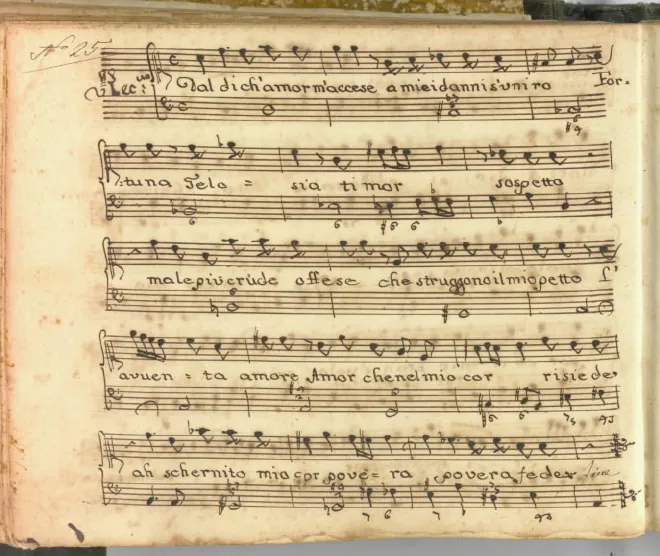 N° 25
Rec:
Dal di ch'amor m'accese a miei danni s'uniro For=
=tuna Gelo = sia timor sospetto
male piu crude offese che struggono il mio petto l'
avuen = ta amore Amor che nel mio cor risiede
ah schernito mio cor pove = ra povera fede fine